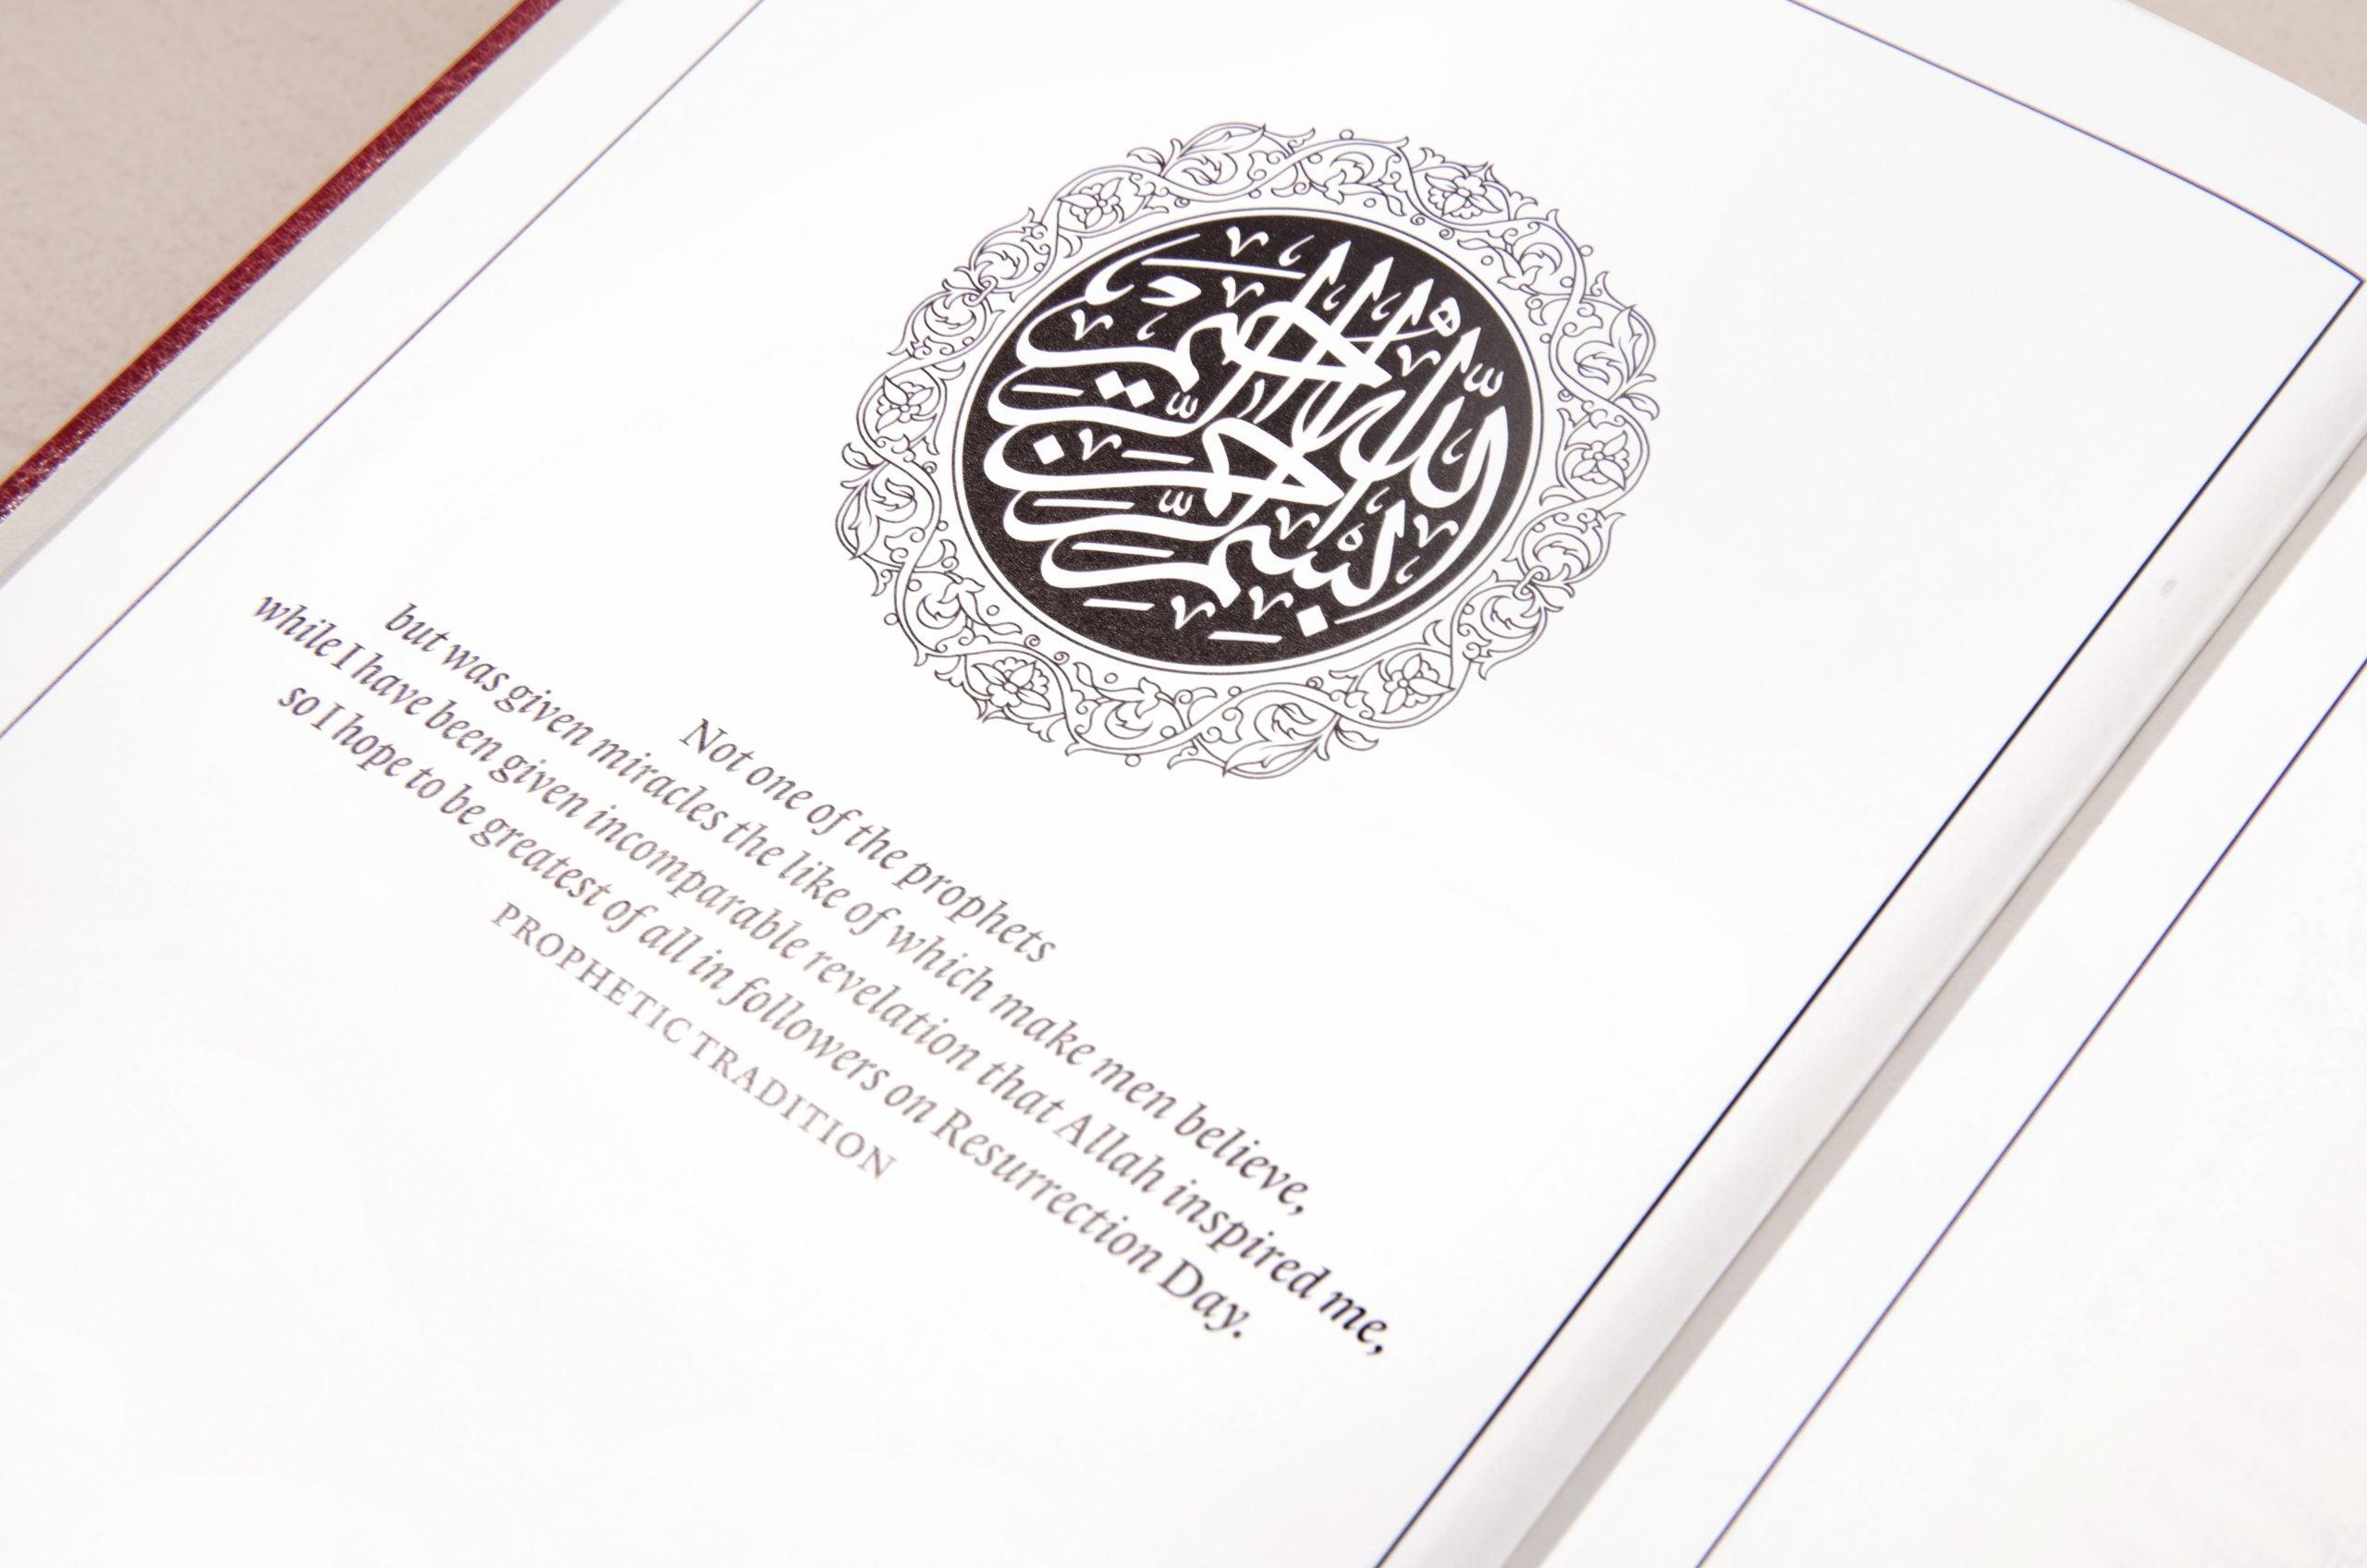 بسم الله الرحمن الرحيم
Not one of the prophets
but was given miracles the like of which make men believe,
while I have been given incomparable revelation that Allah inspired me,
so I hope to be greatest of all in followers on Resurrection Day.
PROPHETIC TRADITION